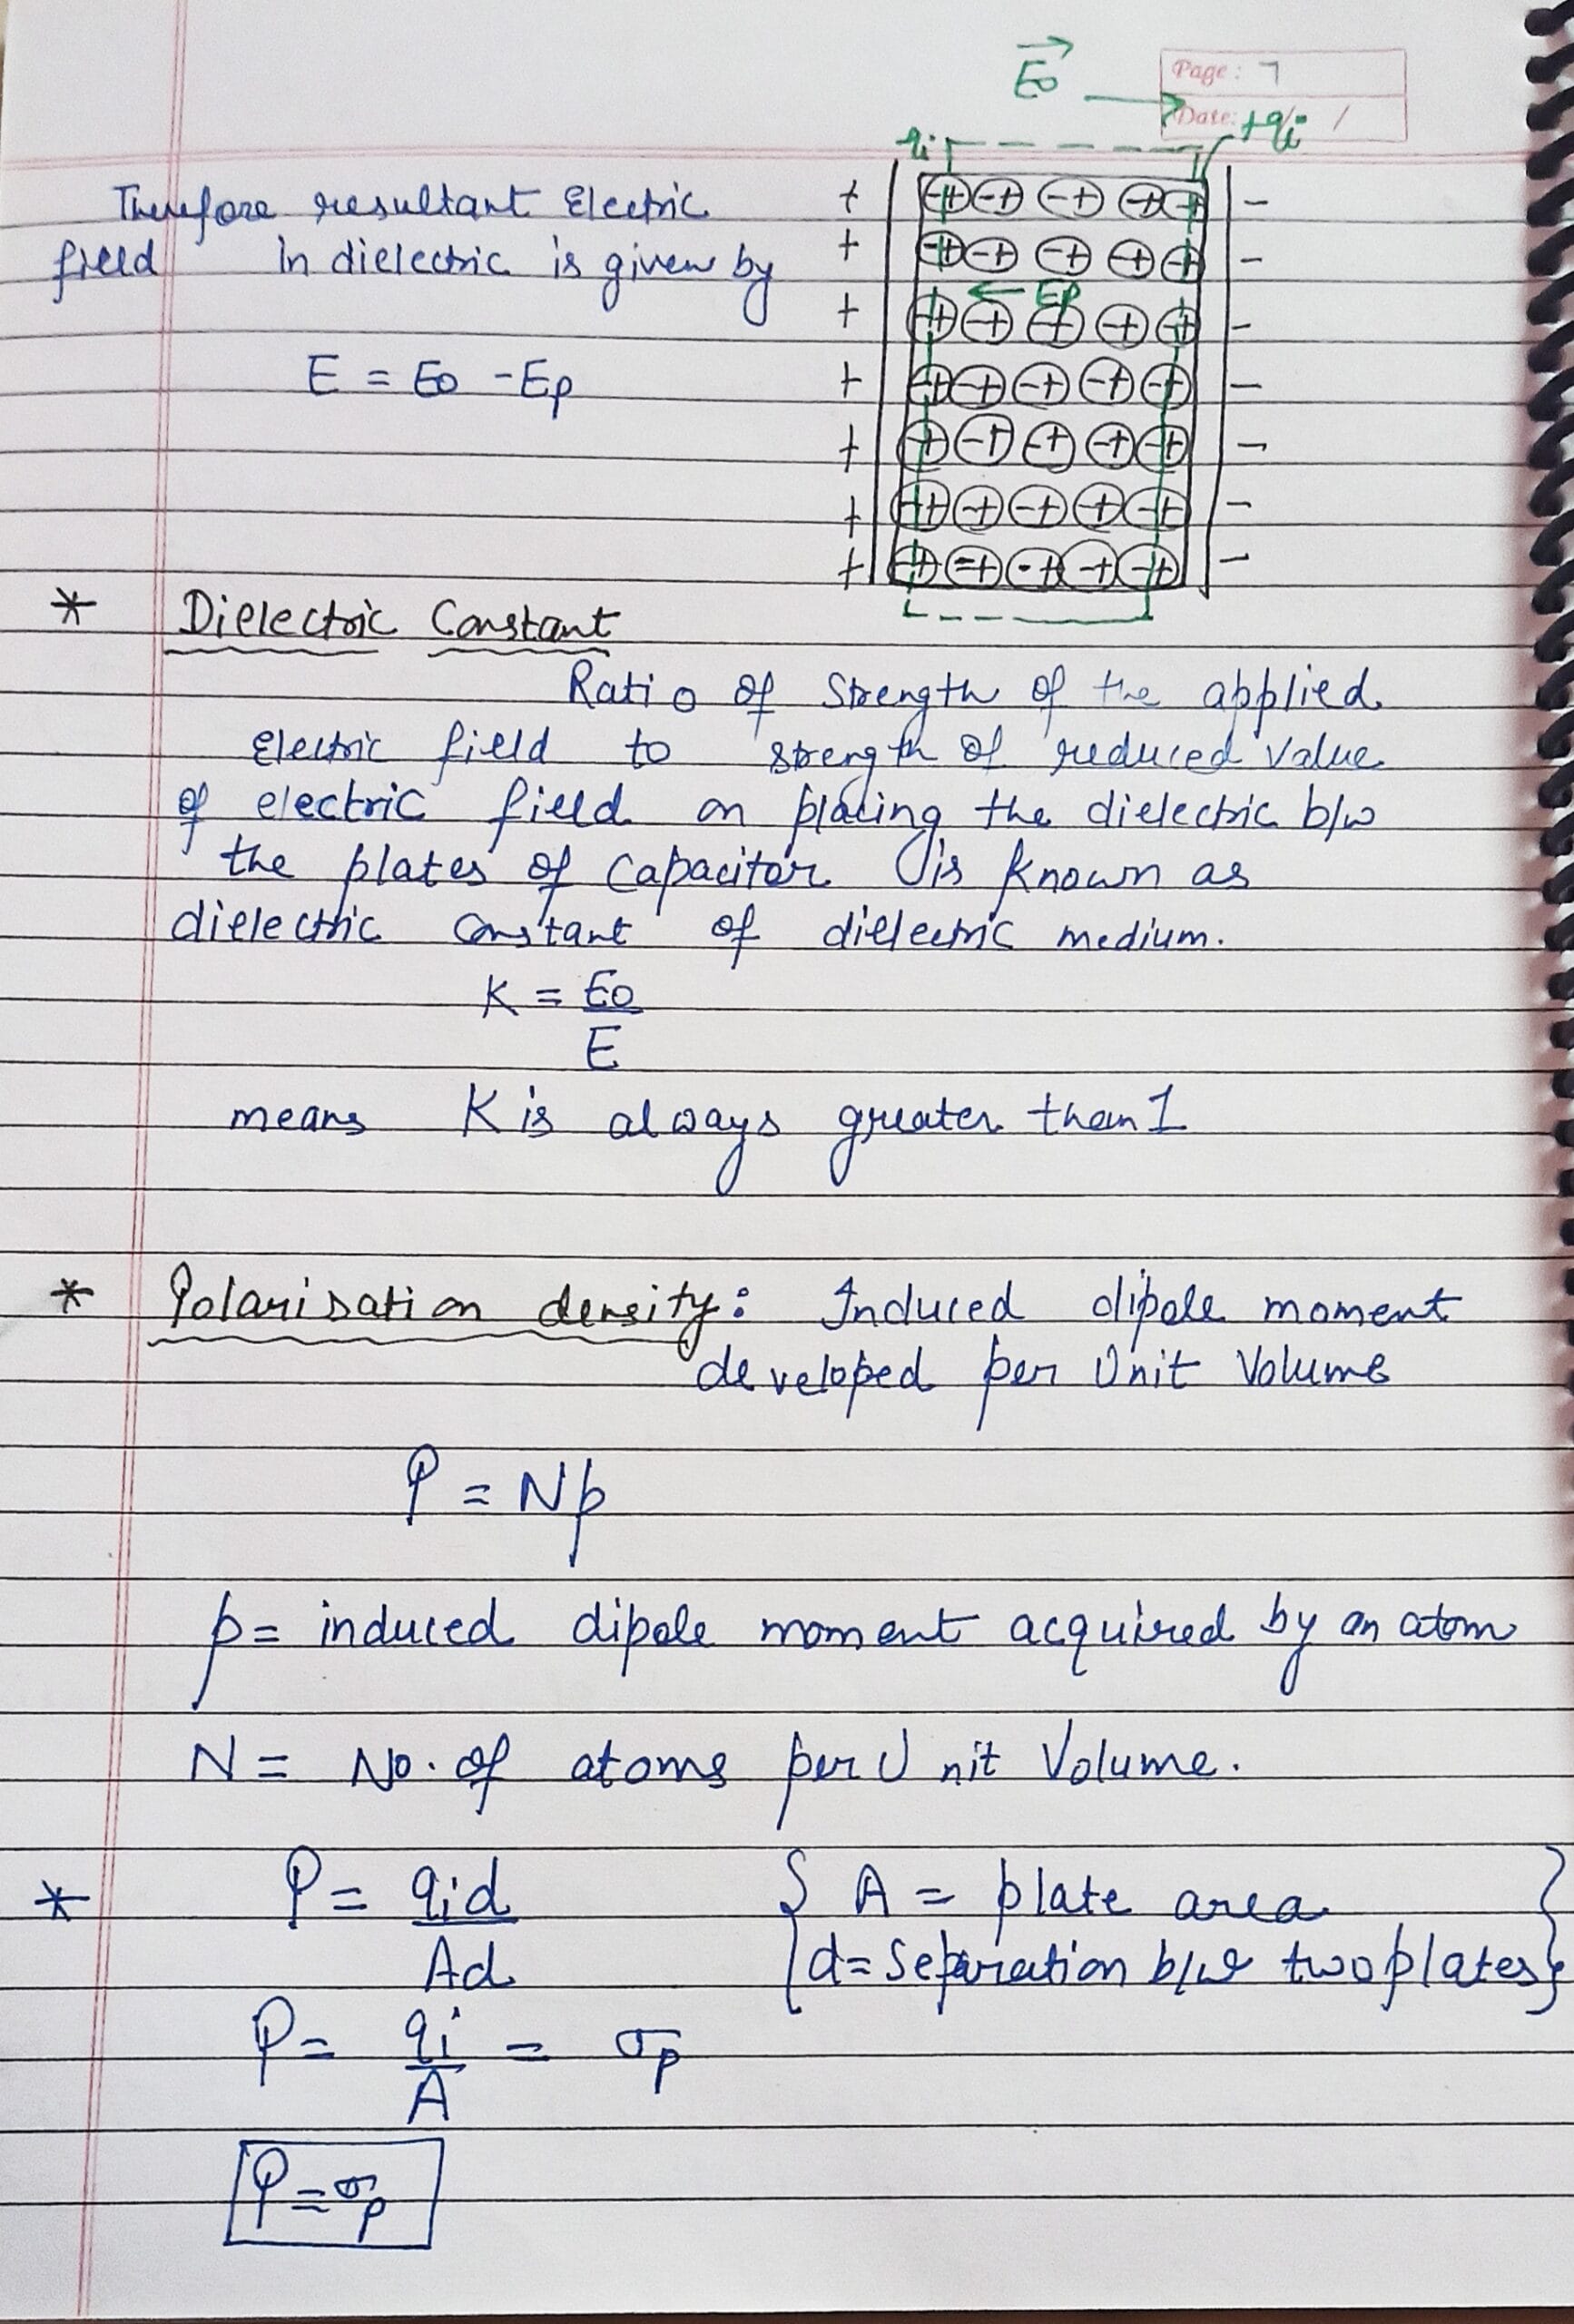 E₀ →
Page: 7
Date: /
qi
+qi
Therefore resultant Electric
field in dielectric is given by
E = E₀ - Ep
+ -+ -+ -+ -+ -+ -
+ -+ -+ -+ -+ -+ -
← Ep
+ -+ -+ -+ -+ -+ -
+ -+ -+ -+ -+ -+ -
+ -+ -+ -+ -+ -+ -
+ -+ -+ -+ -+ -+ -
+ -+ -+ -+ -+ -+ -
* Dielectric Constant
Ratio of Strength of the applied
Electric field to strength of reduced value
of electric field on placing the dielectric b/w
the plates of Capacitor is known as
dielectric constant of dielectric medium.
K = E₀/E
means K is always greater than 1
* Polarisation density: Induced dipole moment
developed per Unit Volume
P = Np
p = induced dipole moment acquired by an atom
N = No. of atoms per Unit Volume.
* P = qid/Ad { A = plate area
d = Separation b/w two plates }
P = qi/A = σp
P = σp